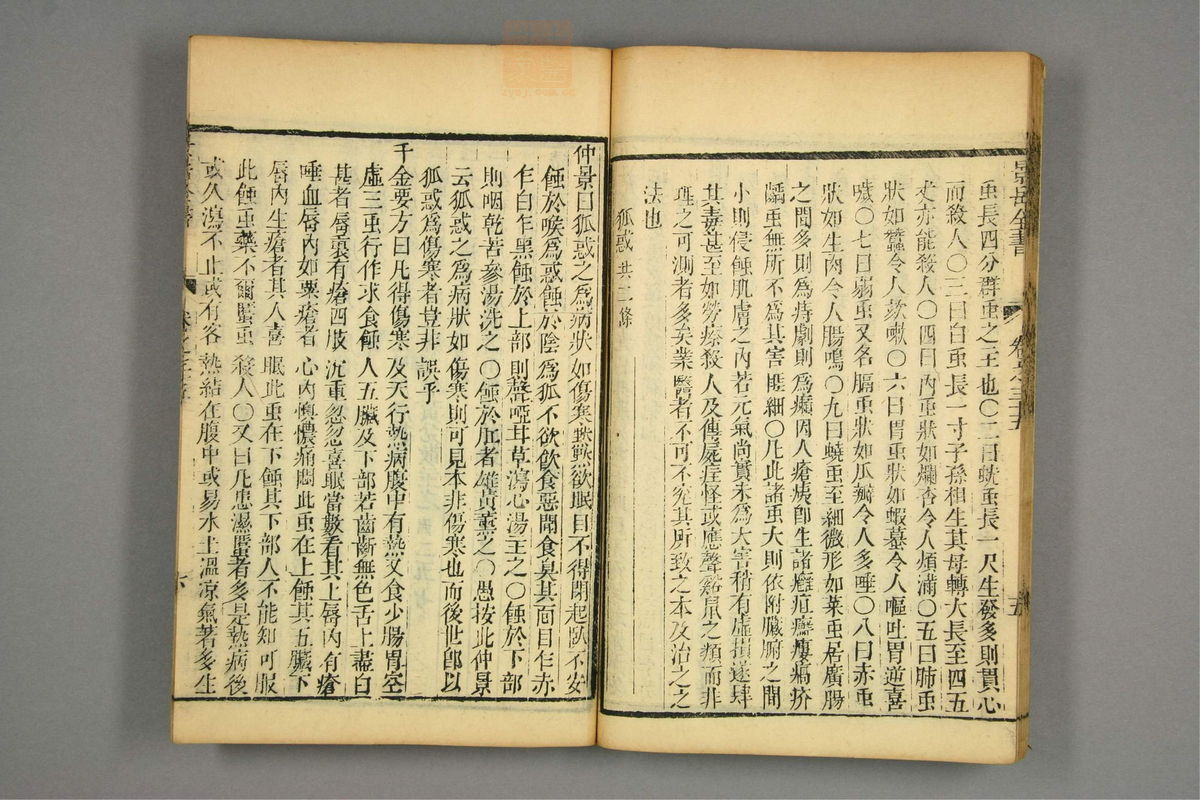 景岳全書
卷之三十五
五
虫長四分群虫之王也〇二曰蚘虫長一尺生發多則貫心
而殺人〇三曰白虫長一寸子孫相生其母轉大長至四五
丈亦能殺人〇四曰肉虫狀如爛杏令人煩滿〇五曰肺虫
狀如蠶令人欬嗽〇六曰胃虫狀如蝦蟇令人嘔吐胃逆喜
噦〇七曰弱虫又名膈虫狀如瓜瓣令人多唾〇八曰赤虫
狀如生肉令人腸鳴〇九曰蟯虫至細微形如菜虫居廣腸
之間多則為痔劇則為癩因人瘡痍即生諸癬疽癰瘻瘑疥
齲虫無所不為其害匪細〇凡此諸虫大則依附臟腑之間
小則侵蝕肌膚之內若元氣尚實未為大害稍有虛損遂肆
其毒甚至如勞瘵殺人及傳屍痓怪或應聲谿鼠之類而非
理之可測者多矣業醫者不可不究其所致之本及治之之
法也
狐惑 共三條
仲景曰狐惑之為病狀如傷寒默默欲眠目不得閉起臥不安
蝕於喉為惑蝕於陰為狐不欲飲食惡聞食臭其面目乍赤
乍白乍黑蝕於上部則聲啞甘草瀉心湯主之〇蝕於下部
則咽乾苦參湯洗之〇蝕於肛者雄黃薰之〇愚按此仲景
云狐惑之為病狀如傷寒則可見本非傷寒也而後世即以
狐惑為傷寒者豈非誤乎
千金要方曰凡得傷寒及天行熱病腹中有熱又食少腸胃空
虛三虫行作求食蝕人五臟及下部若齒齗無色舌上盡白
甚者唇裏有瘡四肢沉重忽忽喜眠當數看其上唇內有瘡
唾血唇內如粟瘡者心內懊憹痛悶此虫在上蝕其五臟下
唇內生瘡者其人喜眠此虫在下蝕其下部人不能知可服
此蝕虫藥不爾䘌虫殺人〇又曰凡患濕䘌者多是熱病後
或久瀉不止或有客熱結在腹中或易水土溫涼氣著多生